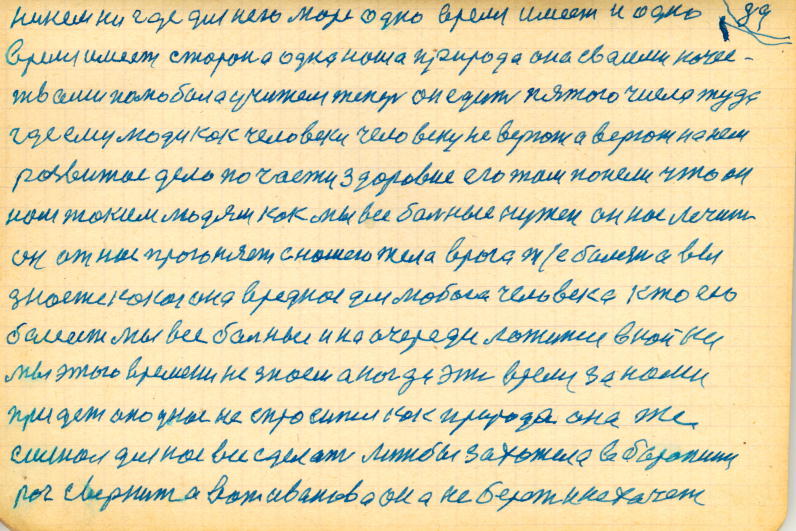 никем ни где для него море одно время имеет и одно
время имеет сторона одна наша природа она своими качес-
твами полюбила учителем теперь он едить пятого числа туда
где ему люди как человеки человеку не верют а верют на нем
развитое дело по части здоровие его там поняли что он
нам таким людям как мы все больные нужен он нас лечить
он от нас прогоняет с нашего тела врага т/е болезня а вы
знаете какая она вредная для любого человека кто ею
болеет мы все больные и на очереди ложимся в койки
мы этого времени не знаем а когда эть время за нами
придет оно у нас не спроситься как природа она же
сильная для нас все сделать лишь бы захотела в
рог свернить а Иванова она не береть и не хочет